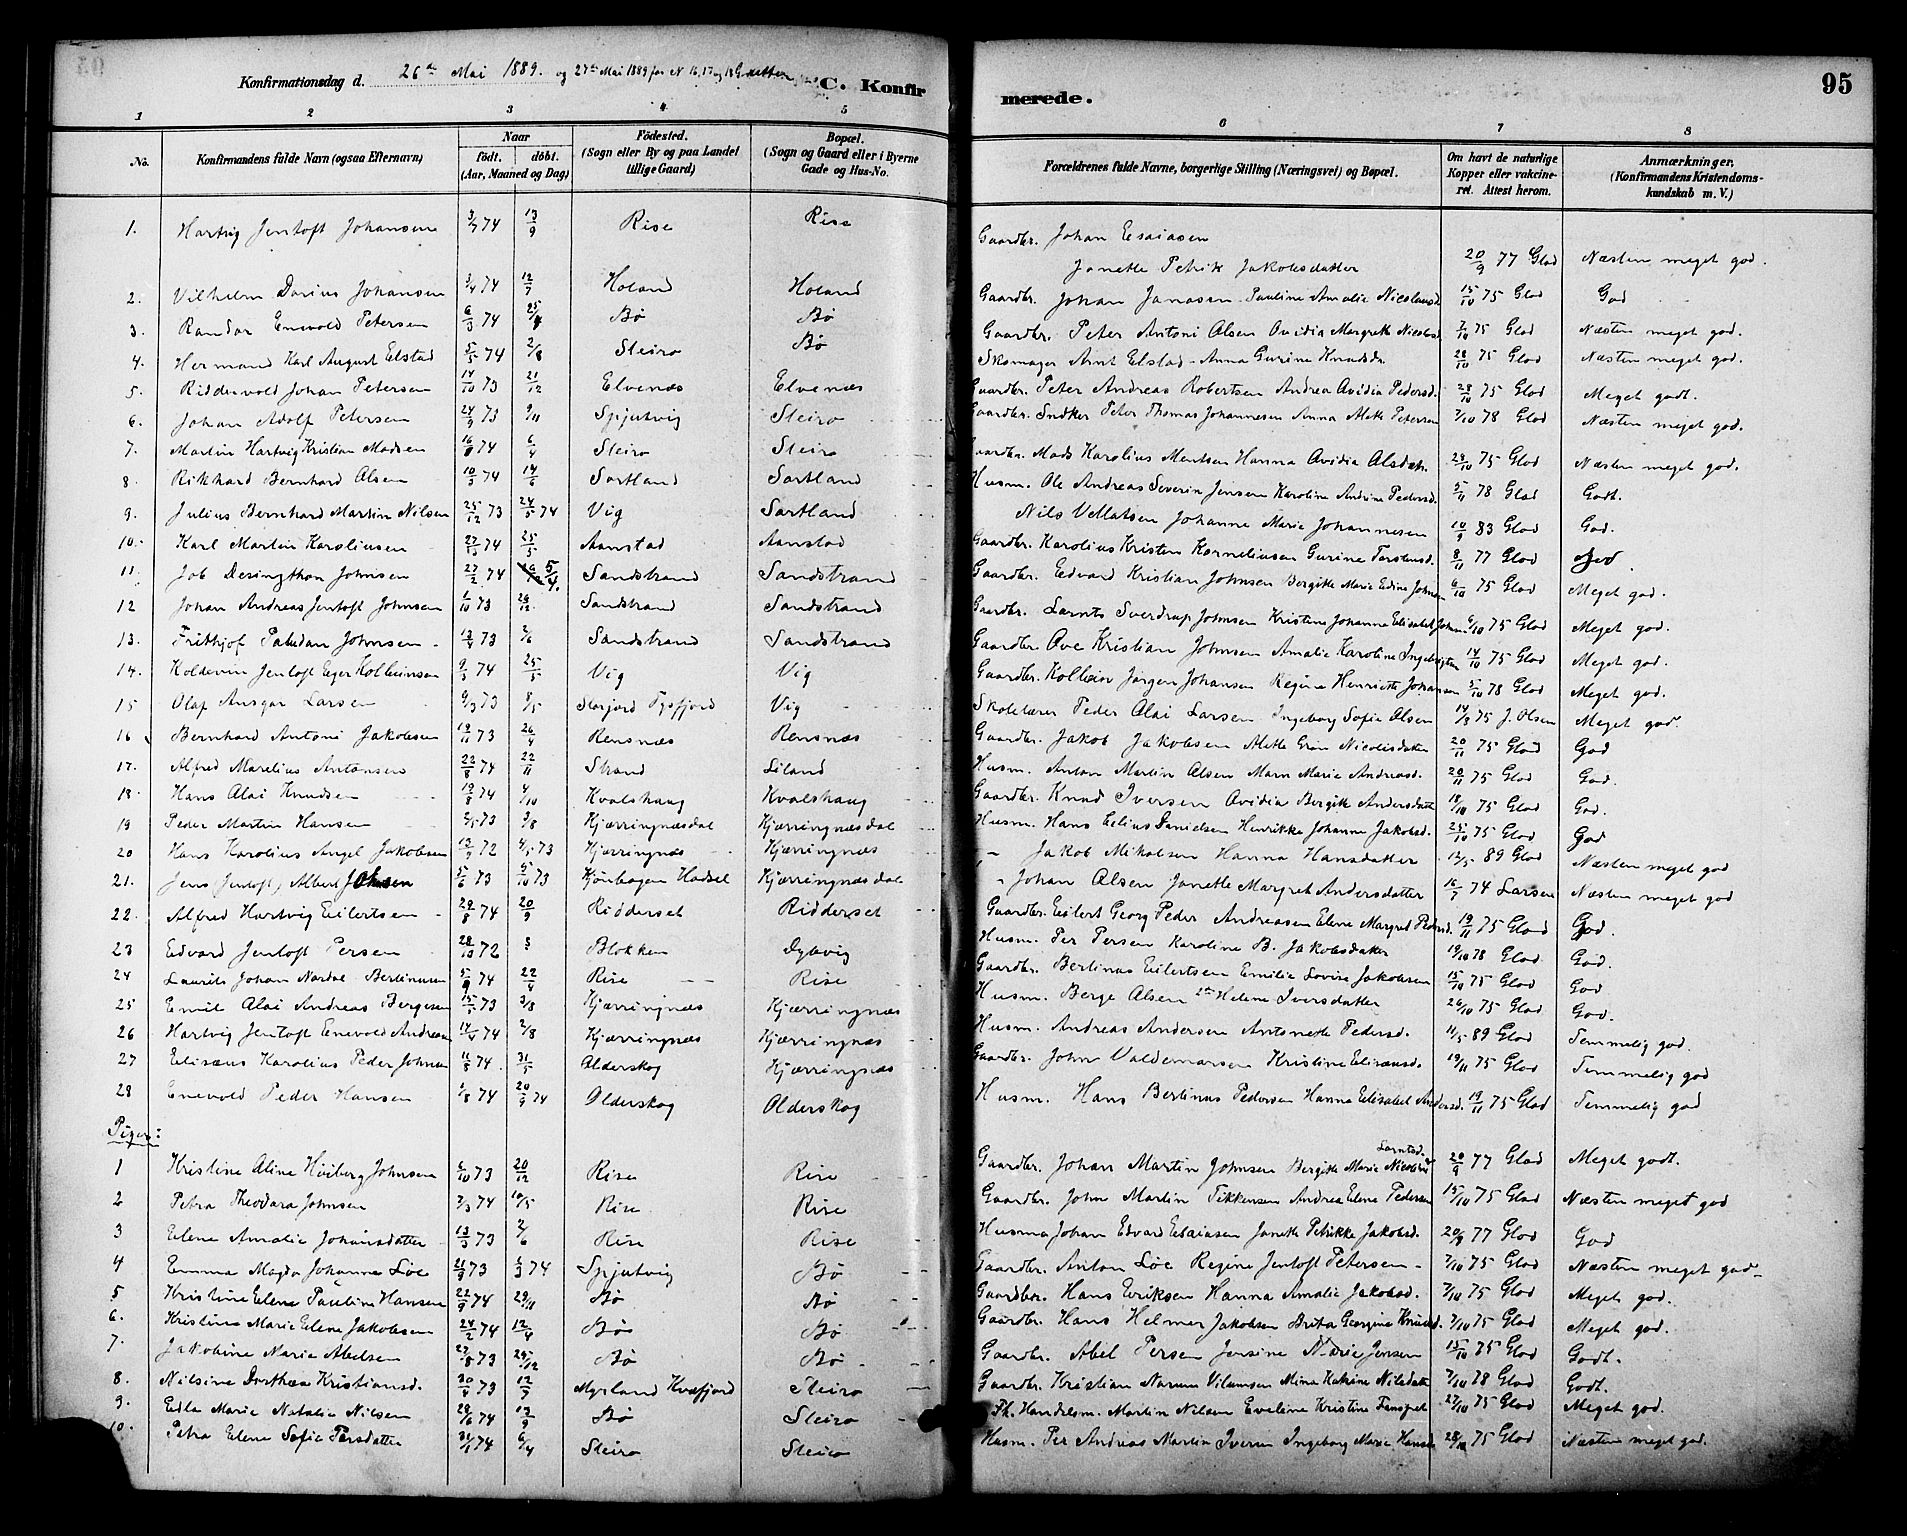 95
Konfirmationsdag d. 26de Mai 1889. og 27de Mai 1889 for N 16, 17 og 18 C. Konfirmerede.
1 2 3 4 5 6 7 8
No. Konfirmandens fulde Navn (ogsaa Efternavn) Naar födt. döbt. (Aar, Maaned og Dag) Födested. (Sogn eller By og paa Landet tillige Gaard) Bopæl. (Sogn og Gaard eller i Byerne Gade og Hus-No. Forældrenes fulde Navne, borgerlige Stilling (Næringsvei) og Bopæl. Om havt de naturlige Kopper eller vakcineret. Attest herom. Anmærkninger, (Konfirmandens Kristendomskundskab m. V.)
1. Hartvig Jentoft Johansen 3/7 74 13/9 Rise Rise Gaardbr. Johan Esaiasen
Janette Petrik Jakobsdatter 20/9 77 Glad Næsten meget god.
2. Vilhelm Darius Johansen 3/4 74 12/7 Holand Holand Gaardbr. Johan Janasen Pauline Amalie Nicolaisd. 15/10 75 Glad God
3. Randor Enevold Petersen 6/3 74 25/4 Bø Bø Gaardbr. Peter Antoni Olsen Ovidia Margrete Nicolaisd. 7/10 75 Glad Næsten meget god.
4. Hermand Karl August Elstad 5/5 74 2/8 Steiro Bø Skomager Arnt Elstad - Anna Gurine Knudsdr. 28/10 75 Glad Næsten meget god.
5. Riddervold Johan Petersen 14/10 73 21/12 Elvenæs Elvenæs Gaardbr. Peter Andreas Robertsen Andrea Ovidia Pedersd. 28/10 75 Glad Meget godt.
6. Johan Adolf Petersen 24/9 73 9/11 Spjutvig Steiro Gaardbr. Sndker Peter Thomas Johannesen Anna Mette Petersen 7/10 78 Glad Næsten meget god.
7. Martin Hartvig Kristian Madsen 74 6/4 Steiro Steiro Gaardbr. Mads Karolius Mentsen Hanna Ovidia Olsdatr. 29/10 75 Glad Næsten meget god.
8 Rikhard Bernhard Olsen 10/3 74 14/6 Sortland Sortland Husm. Ole Andreas Severin Jensen Karoline Andrine Pedersd. 5/11 78 Glad Godt.
9. Julius Bernhard Martin Nilsen 25/12 73 24/5 74 Vig Sortland Nils Vellatsen Johanna Marie Johannesen 10/9 83 Glad God.
10. Karl Martin Karoliusen 74 25/5 Aanstad Aanstad Gaardbr. Karolius Kristen Korneliusen Gurine Torstensd. 8/11 77 Glad God.
11. Job Desingthon Johnsen 27/2 74 5/4. Sandstrand Sandstrand Gaardbr. Edvard Kristian Johnsen Bergitte Marie Edine Johnsen 6/10 75 Glad Meget god.
12 Johan Andreas Jentoft Johnsen 1/10 73 29/12. Sandstrand Sandstrand Gaardbr. Larnts Sverdrup Johnsen Kristine Johanna Elisabet Johan. 6/10 75 Glad Meget god.
13. Frithjof Paludan Johnsen 73 2/6 Sandstrand Sandstrand Gaardbr. Ove Kristian Johnsen Amalie Karoline Ingebrigtsen 14/10 75 Glad Meget god.
14. Koldevin Jentoft Eger Kolbeinsen 9/3 74 25/5 Vig Vig Gaardbr. Kolbein Jørgen Johansen Regine Henriette Johansen 5/10 78 Glad Meget god.
15 Olaf Ansgar Larsen 9/3 73 8/5 Storjord Tysfjord Vig Skolelærer Peder Olai Larsen Ingeborg Sofie Olsen 14/3 75 J. Olsen Meget god.
16 Bernhard Antoni Jakobsen 19/11 73 26/4 Rensnæs Rensnæs Gaardbr. Jakob Jakobsen Mette Gran Nicolaisdatter 20/11 75 Glad God
17. Alfred Marelius Antonsen 22/8 74 22/11 Strand Liland Husm. Anton Martin Olsen Maren Marie Andreasd. 20/11 75 Glad God.
18 Hans Olai Knudsen 19/8 74 4/10 Kvalshaug Kvalshaug Gaardbr. Knud Iversen Ovidia Bergitte Andersdatter 18/10 75 Glad God.
19 Peder Martin Hansen 2/5 73 3/8 Kjærringnæsdal Kjærringnæsdal Husm. Hans Edius Danielsen Henrikke Johanna Jakobsd. 25/10 75 Glad God
20 Hans Karolius Angel Jakobsen 12/9 72 4/5 73 Kjærringnæs Kjærringnæs - Jakob Mikalsen Hanna Hansdatter 12/5 89 Glad Næsten meget god
21. Jens (Jentoft) Albert Johnsen 5/6 73 5/10 73 Kjønhagen Hadsel Kjærringnæsdal " Johan Olsen Janette Margret Andersdatter 16/7 74 Larsen Næsten meget god
22. Alfred Hartvig Eilertsen 29/8 74 20/9 Ridderset Ridderset Gaardbr. Eilert Georg Peder Andreasen Elene Margret Pedersd. 19/11 75 Glad God.
23 Edvard Jentoft Persen 28/10 72 Blokken Dybvig Husm. Per Persen Karoline B. Jakobsdatter 19/10 78 Glad God.
24 Laurits Johan Nordal Bertinusen 5/9 74 22/4 Rise Rise Gaardbr. Bertinus Eilertsen Emilie Lovise Jakobsen 15/10 75 Glad God
25 Emil Olai Andreas Bergesen 73 3/8 Kjærringnæs Kjærringnæs Husm. Berge Olsen 2den Helene Iversdatter 26/10 75 Glad God.
26 Hartvig Jentoft Enevold Andreasen 14/4 74 2/8 Kjærringnæs Kjærringnæs Husm. Andreas Andersen Antonette Pedersd. 11/5 89 Glad Temmelig god.
27 Elisæus Karolius Peder Johnsen 11/3 74. 31/5 Olderskog Kjærringnæs Gaardbr. John Valdemarsen Kristine Elisæusd. 19/11 75 Glad Temmelig god
28 Enevold Peder Hansen 1/8 74 20/9 74 Olderskog Olderskog Husm. Hans Bertinus Pedersen Hanna Elisabet Andersd. 19/11 75 Glad Temmelig god
Piger:
1 Kristine Aline Høiberg Johnsen 6/10 73 20/12 Rise Rise Gaardbr. Johan Martin Johnsen Bergitte Marie Nicolaisd. Larntsd. 20/9 77 Glad Meget godt.
2 Petra Theodora Johnsen 2/3 74 10/5 Rise Rise Gaardbr. John Martin Tikkensen Andrea Elene Pedersen 15/10 75 Glad Næsten meget god
3 Elene Amalie Johansdatter 13/3 73 2/6 Rise Rise Husma Johan Edvard Esaiasen Janette Petrikke Jakobsd. 20/9 77 Glad God
4 Emma Magda Johanne Løe 21/9 73 1/3 74 Spjutvig Bø Gaardbr. Anton Løe Regine Jentoft Petersen 7/10 75 Glad Næsten meget god
5 Kristine Elene Pauline Hansen 22/9 74 29/11 Bø Bø Gaardbr. Hans Eriksen Hanna Amalie Jakobsd. 7/10 75 Glad Meget god.
6. Kristine Marie Elene Jakobsen 24/2 74 12/4 Bø Bø Gaardbr. Hans Helmer Jakobsen Brita Georgine Knudsd. 7/10 75 Glad Meget god.
7. Jakobine Marie Abelsen 27/8 73 25/12 Bø Bø Gaardbr. Abel Persen Jensine Marie Jensen 15/10 75 Glad Godt.
8. Nilsine Dorthea Kristiansd. 30/4 73 12/7 Myrland Kvæfjord Steiro Gaardbr. Kristian Narum Vilumsen Mina Katrine Nilsdatter 7/10 78 Glad Godt.
9. Edle Marie Natalie Nilsen 29/6 74 13/9 Bø Steiro Fh. Handelsm. Martin Nilsen Eveline Kristine 27/10 75 Glad Meget god.
10. Petra Elene Sofie Persdatter 74 6/4 Steiro Steiro Husm. Per Andreas Martin Iversen Ingeborg Marie Hansd. 28/10 75 Glad Næsten meget god.